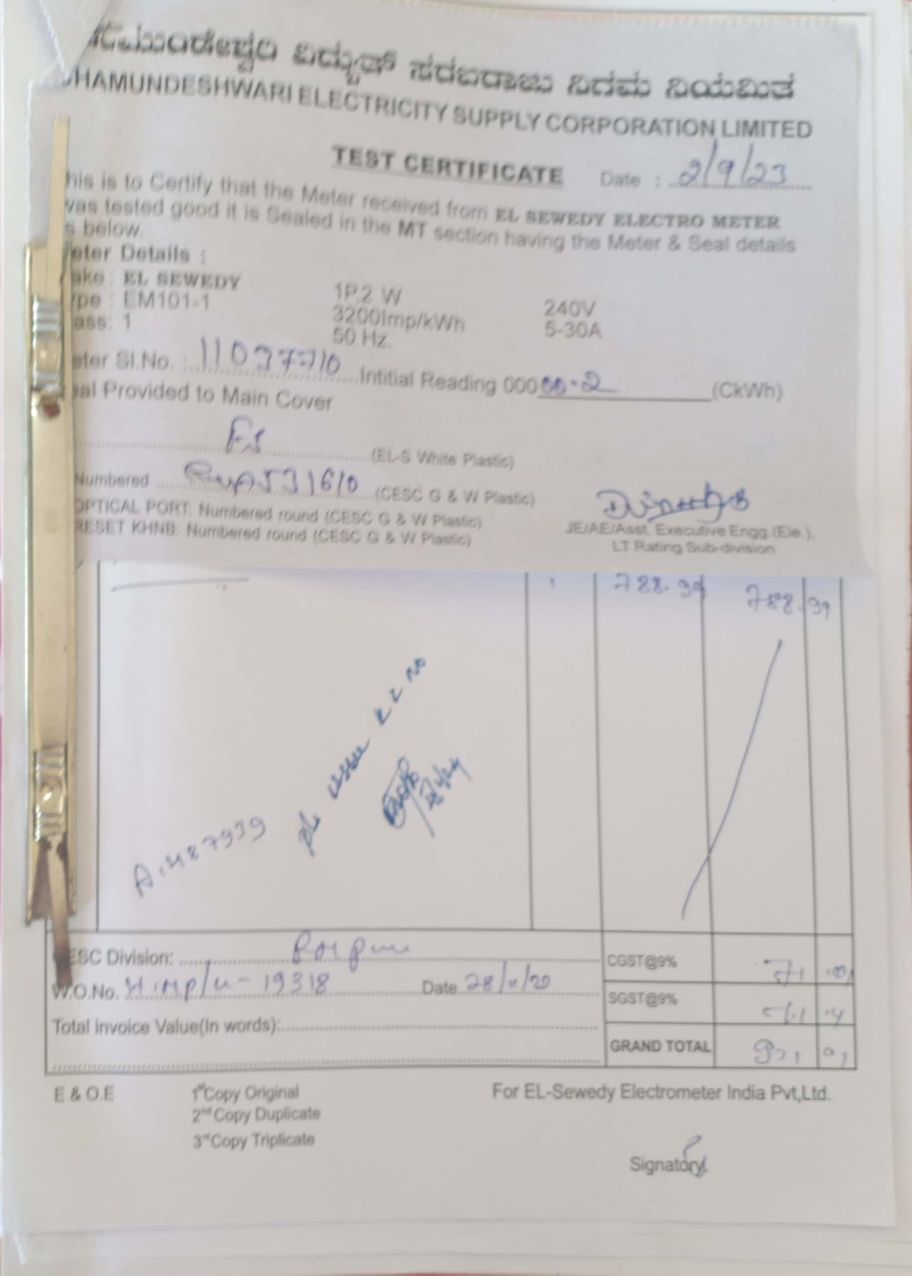 ಚಾಮುಂಡೇಶ್ವರಿ ವಿದ್ಯುತ್ ಸರಬರಾಜು ನಿಗಮ ನಿಯಮಿತ
HAMUNDESHWARI ELECTRICITY SUPPLY CORPORATION LIMITED
TEST CERTIFICATE Date : 2/9/23
his is to Certify that the Meter received from EL SEWEDY ELECTRO METER
was tested good it is Sealed in the MT section having the Meter & Seal details
s below.
eter Details :
ake : EL SEWEDY 1P.2 W 240V
ype : EM101-1 3200Imp/kWh 5-30A
ass: 1 50 Hz.
eter Sl.No. : 11037710 Intitial Reading 00000.2 (CkWh)
eal Provided to Main Cover
ES (EL-S White Plastic)
Numbered 531610 (CESC G & W Plastic)
OPTICAL PORT: Numbered round (CESC G & W Plastic)
RESET KHNB: Numbered round (CESC G & W Plastic)
JE/AE/Asst. Executive Engg.(Ele.).
LT Rating Sub-division
788.99 788.99
pl issue RR no
A.487939
ESC Division:
W.O.No. 19318 Date
Total Invoice Value(In words):
CGST@9% 71
SGST@9%
GRAND TOTAL
E & O.E
1st Copy Original
2nd Copy Duplicate
3rd Copy Triplicate
For EL-Sewedy Electrometer India Pvt,Ltd.
Signatory.